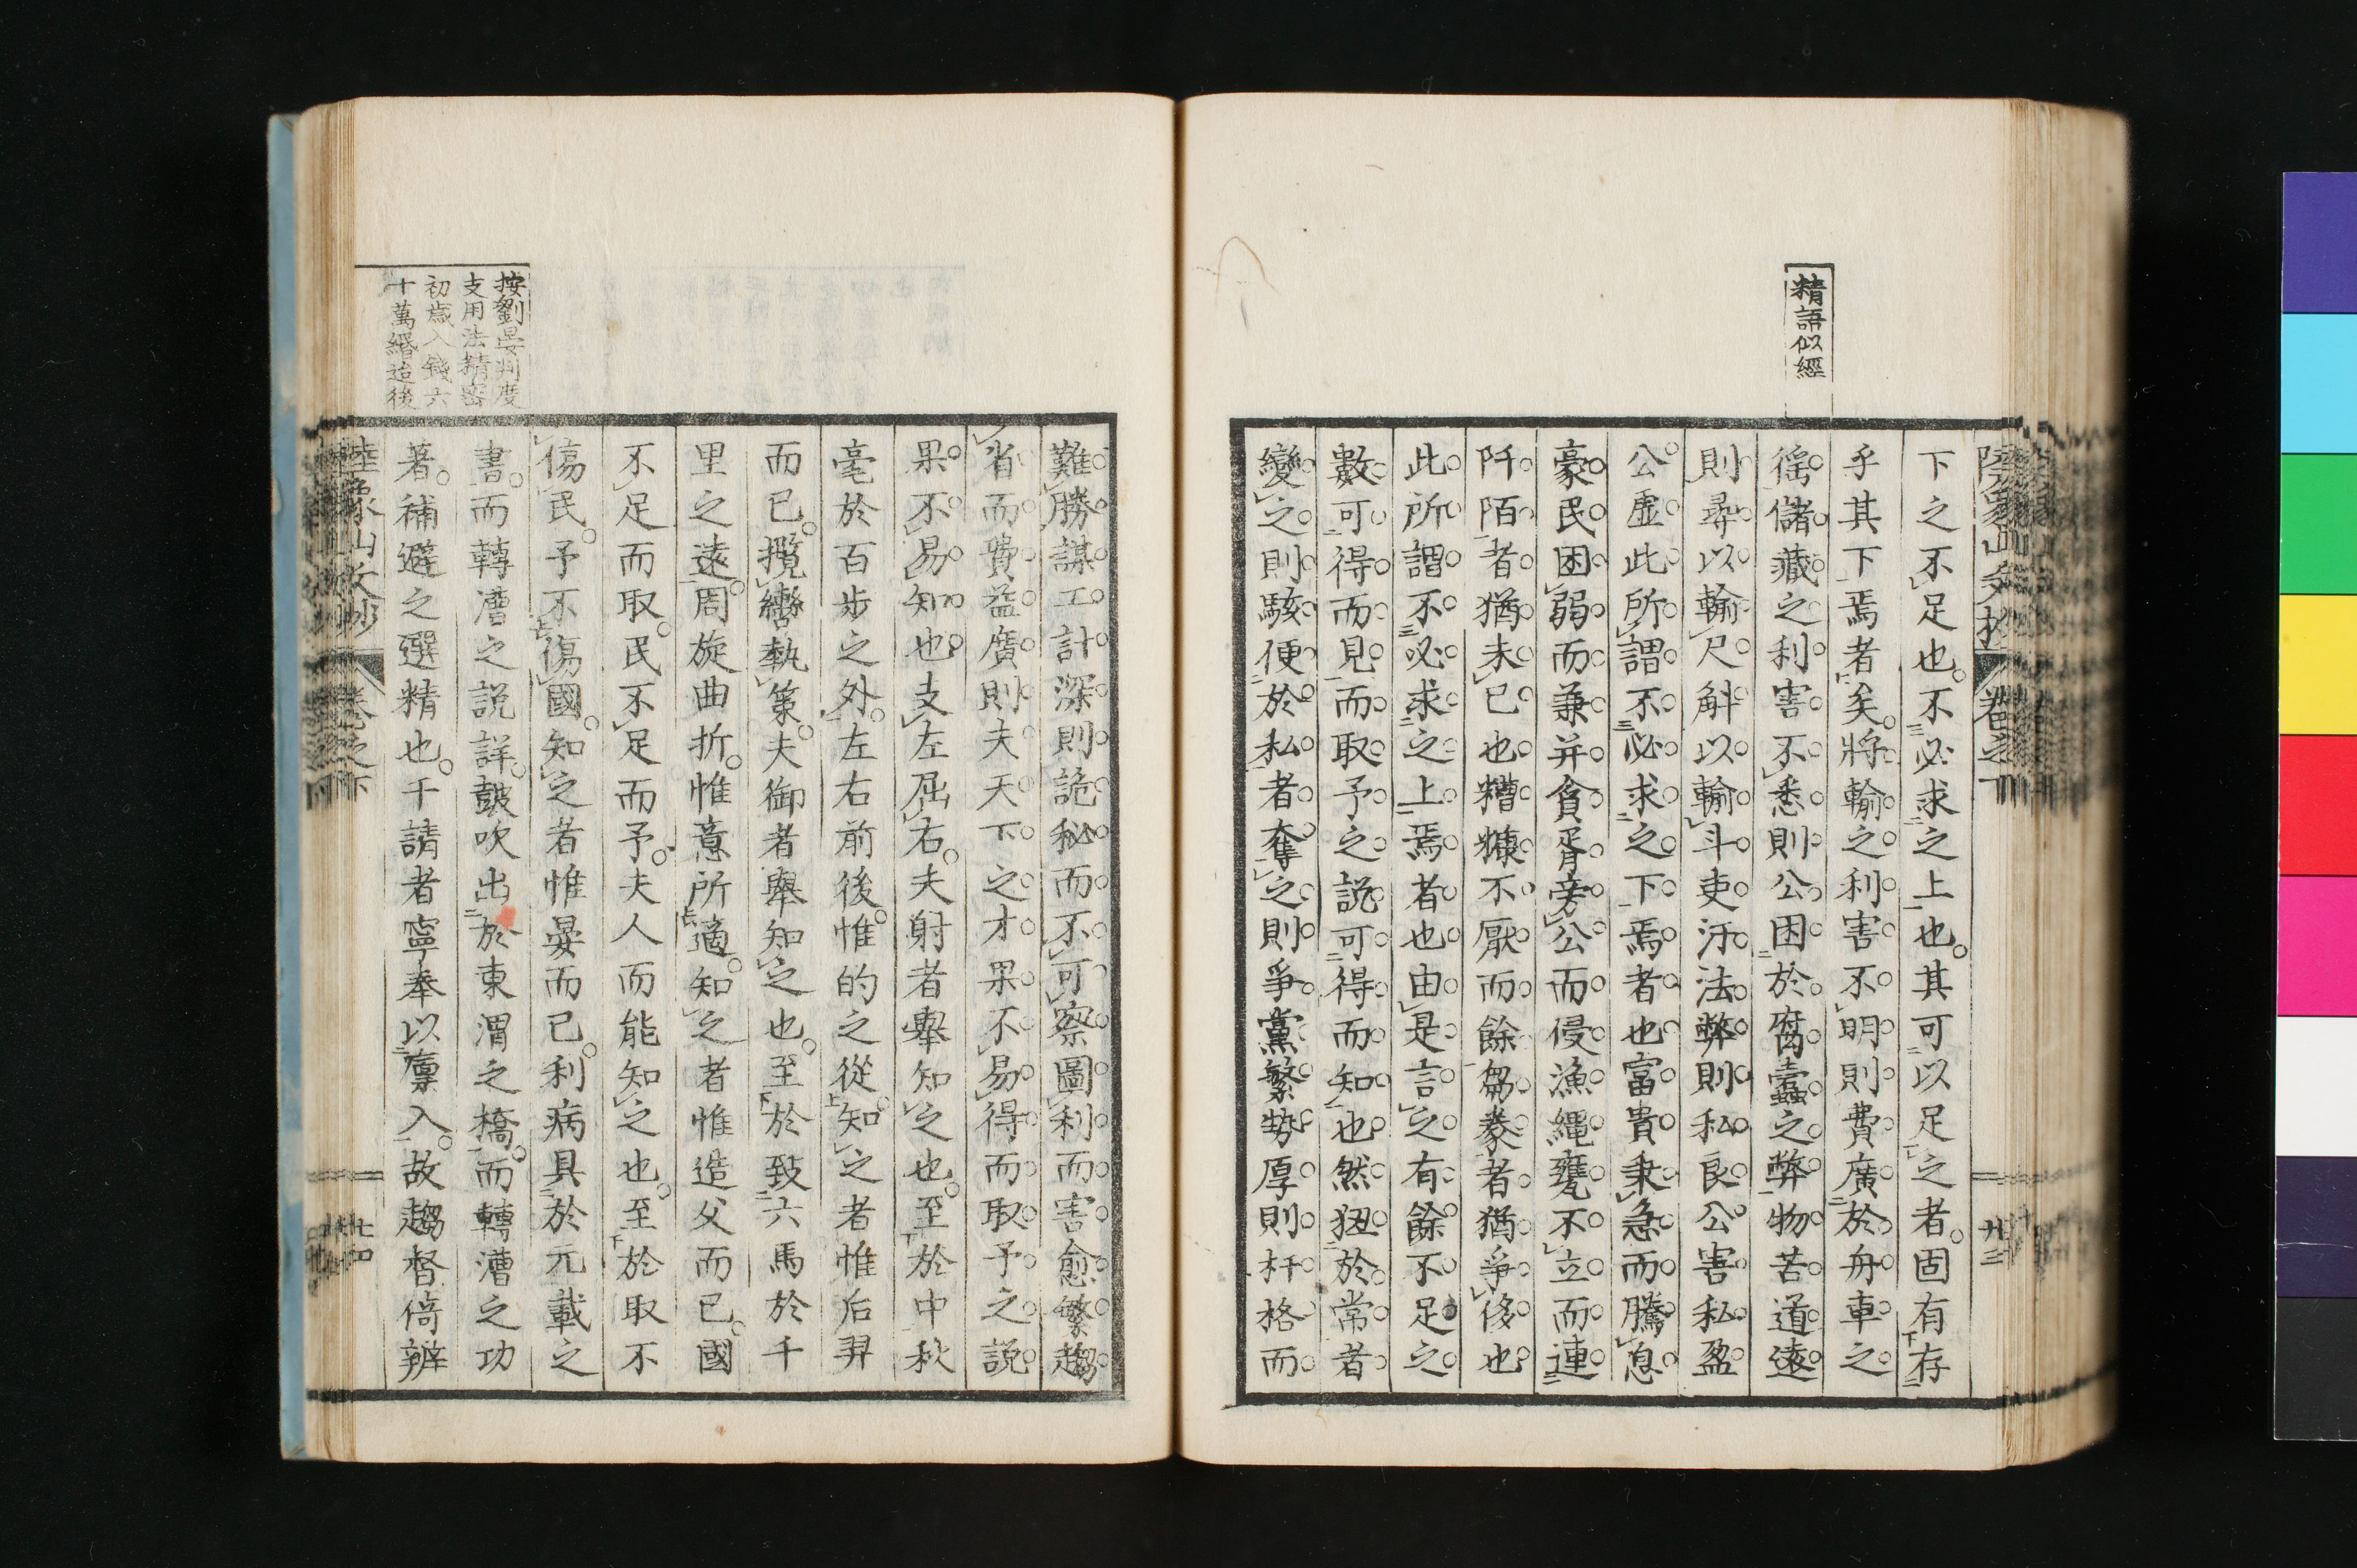 精語似經
下之不足也不必求之上也其可以足之者固有存
乎其下焉者矣將輸之利害不明則費廣於舟車之
徭儲藏之利害不悉則公困於腐蠹之弊物苦道遠
則尋以輸尺斛以輸斗吏汙法弊則私良公害私盈
公虛此所謂不必求之下焉者也富貴秉急而騰息
豪民困弱而兼并貪胥旁公而侵漁繩甕不立而連
阡陌者猶未已也糟糠不厭而餘芻豢者猶爭侈也
此所謂不必求之上焉者也由是言之有餘不足之
數可得而見而取予之説可得而知也然狃於常者
變之則駭便於私者奪之則爭黨繁勢厚則杆格而
難勝謀工計深則詭秘而不可察圖利而害愈繁趨
省而費益廣則夫天下之才果不易得而取予之說
果不易知也支左屈右夫射者舉知之也至於中秋
毫於百步之外左右前後惟的之從知之者惟后羿
而已攬轡執策夫御者舉知之也至於致六馬於千
里之遠周旋曲折惟意所適知之者惟造父而已國
不足而取民不足而予夫人而能知之也至於取不
傷民予不傷國知之者惟晏而已利病具於元載之
書而轉漕之説詳鼓吹出於東渭之橋而轉漕之功
著補避之選精也干請者寧奉以廩入故趨督倚辨
按劉晏判度
支用法精密
初歲入錢六
十萬緡迨後
陸象山文抄 卷之下